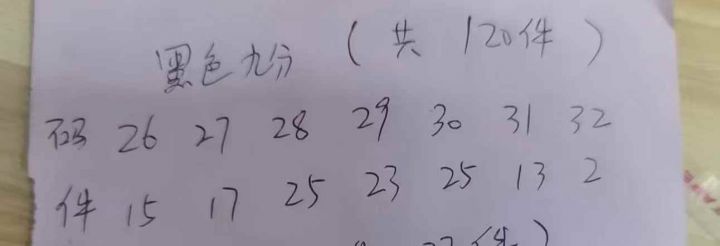 黑色九分（共120件）
码 26 27 28 29 30 31 32
件 15 17 25 23 25 13 2
件）